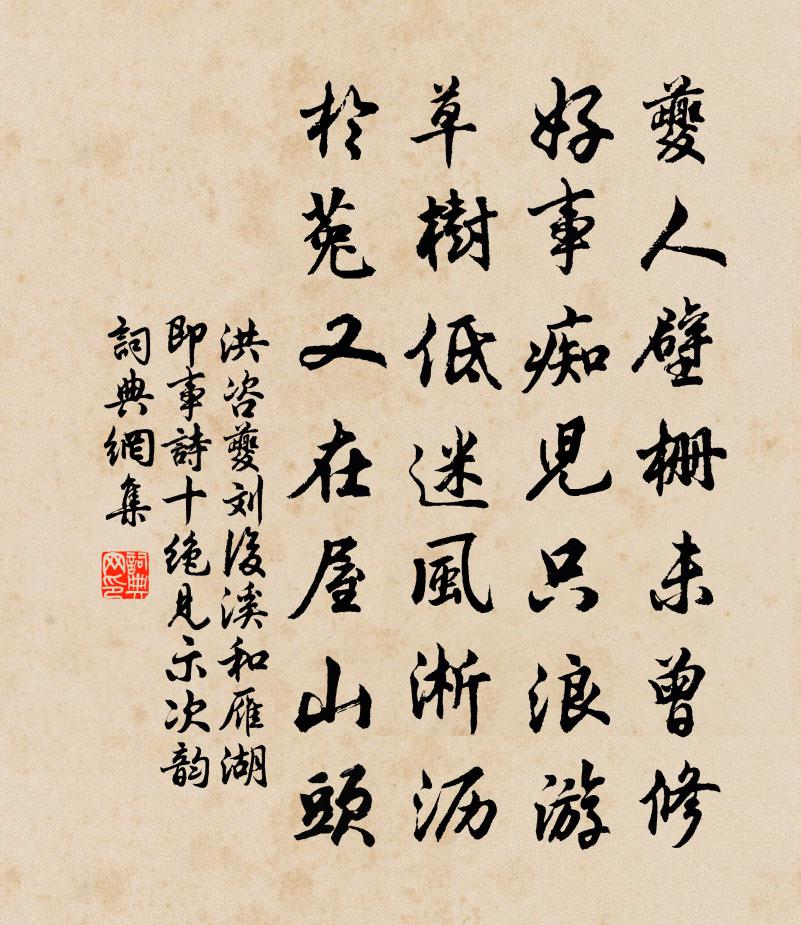 夔人壁栅未曾修
好事痴児只浪游
草樹低迷風淅沥
於菟又在屋山頭
洪咨夔刘後溪和雁湖
即事詩十绝見示次韵
詞典網集
詞典网印